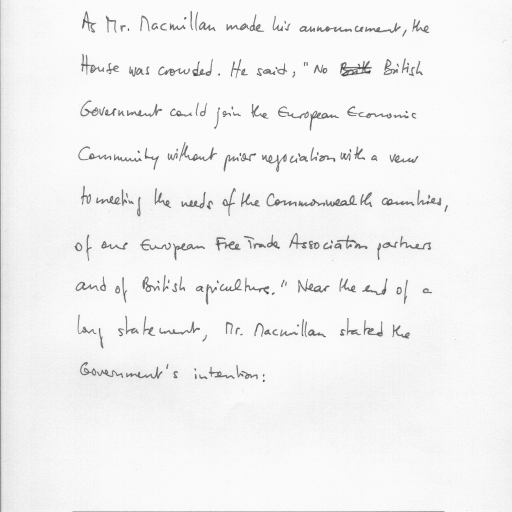 As Mr. Macmillan made his announcement, the
House was crowded. He said, "No British
Government could join the European Economic
Community without prior negociation with a view
to meeting the needs of the Commonwealth countries,
of our European Free Trade Association partners
and of British agriculture." Near the end of a
long statement, Mr. Macmillan stated the
Government's intention: